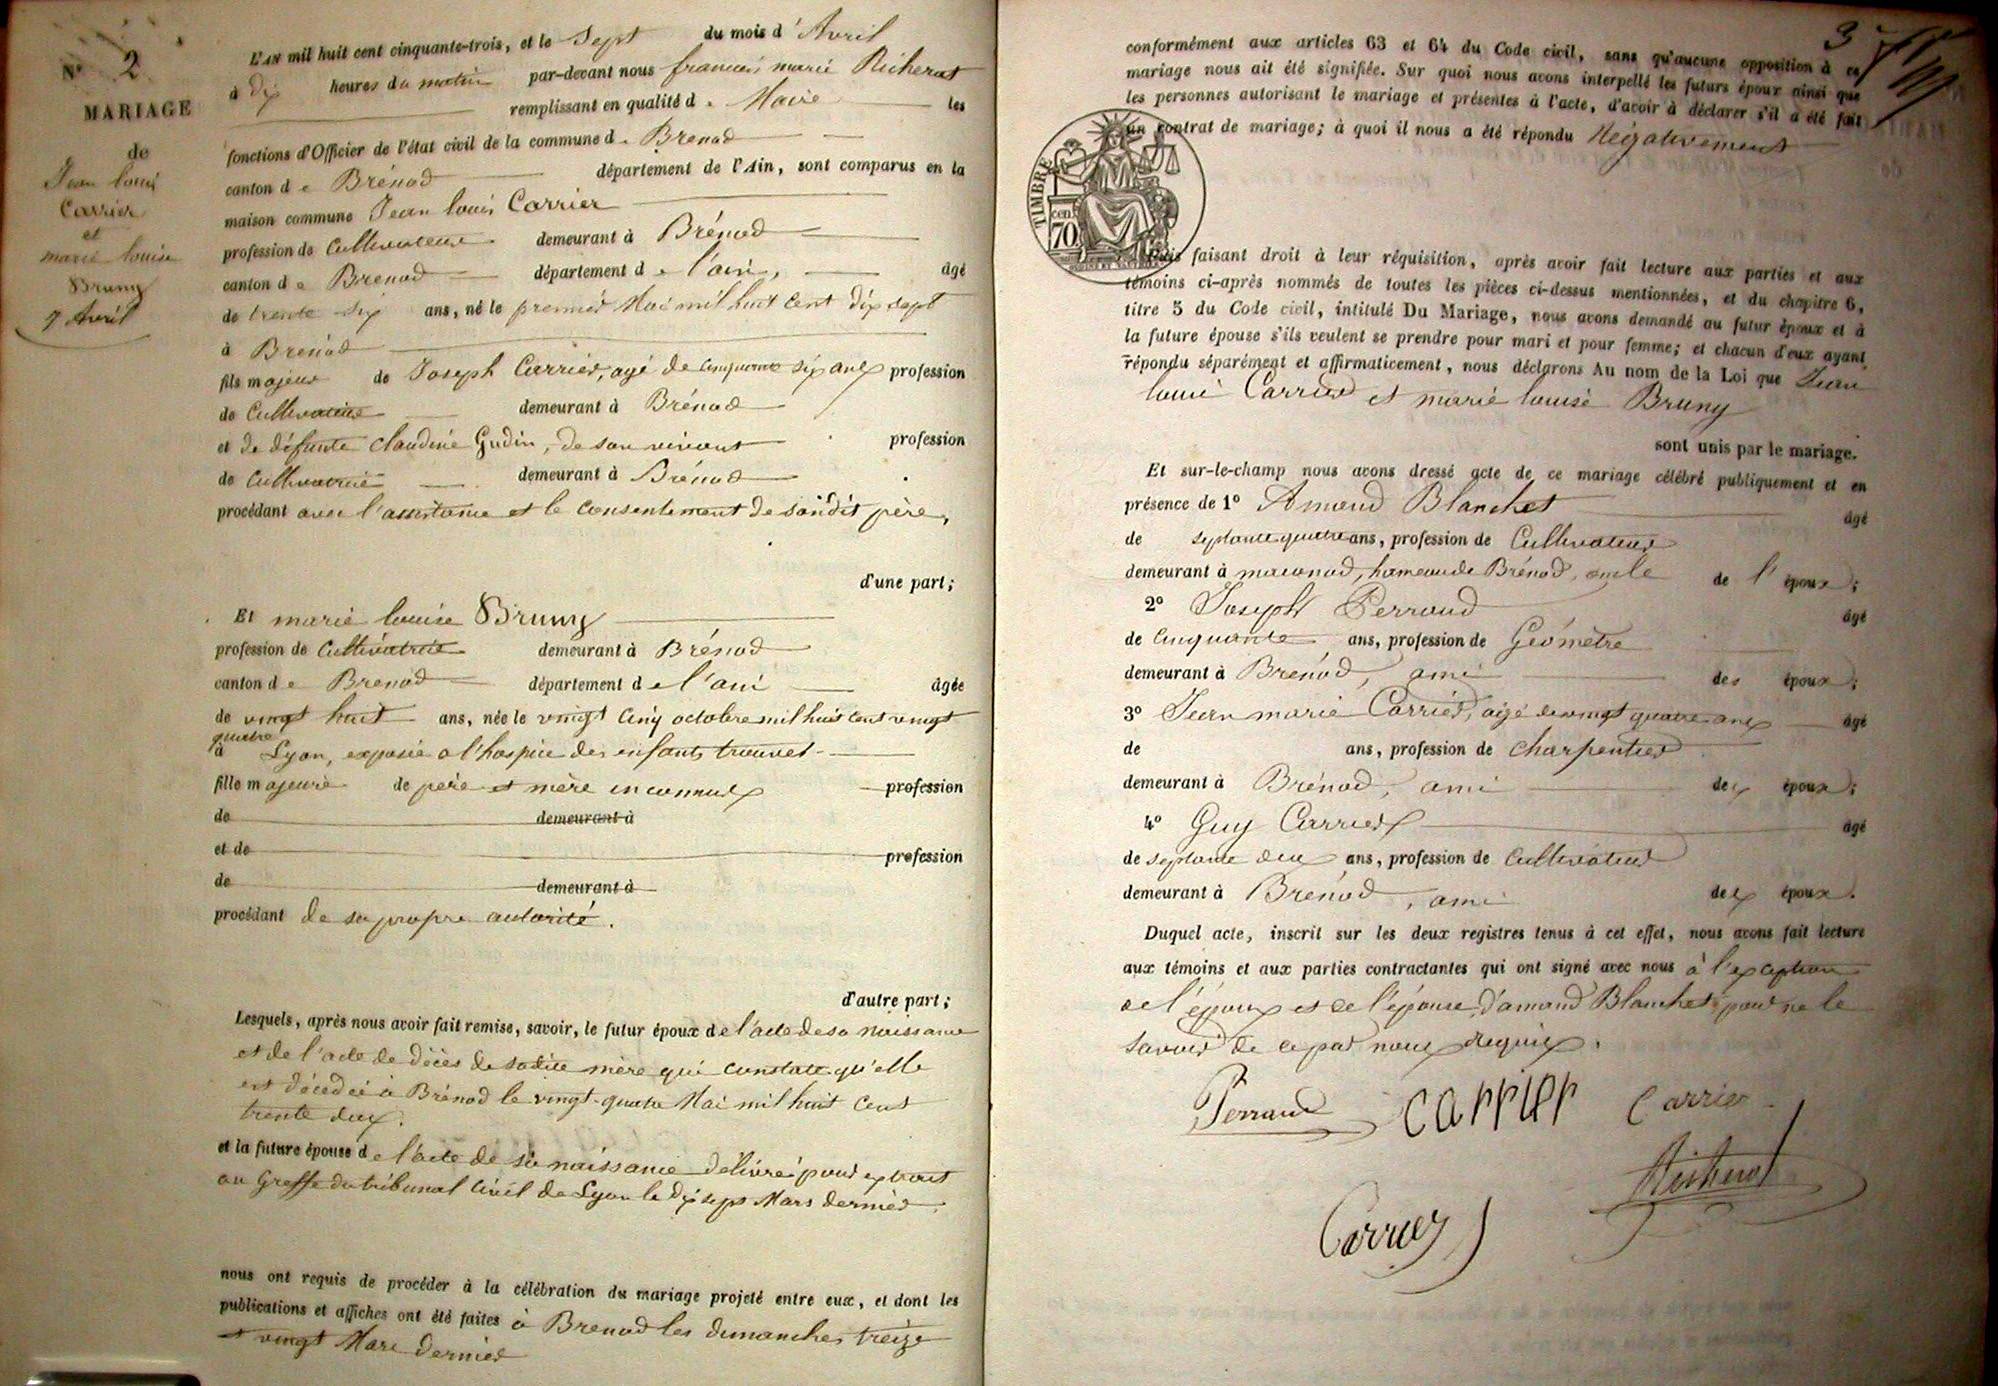 N° 2
MARIAGE
de
Jean Louis
Carrier
et
marie louise
Bruny
7 Avril
L'AN mil huit cent cinquante-trois, et le Sept du mois d'Avril
à dix heures du matin par-devant nous francois marie Richerot
remplissant en qualité de Maire les
fonctions d'Officier de l'état civil de la commune de Brenod
canton de Brénod département de l'Ain, sont comparus en la
maison commune Jean louis Carrier
profession de Cultivateur demeurant à Brénod
canton de Brenod département de l'ain, âgé
de trente six ans, né le premier Mai mil huit cent dix sept
à Brenod
fils majeur de Joseph Carrier, agé de cinquante six ans profession
de Cultivateur demeurant à Brénod
et de défunte claudine Gudin, de son vivant profession
de Cultivatrice demeurant à Brénod
procédant avec l'assistance et le consentement de sondit père,
d'une part;
Et marie louise Bruny
profession de Cultivatrice demeurant à Brénod
canton de Brenod département de l'ain âgée
de vingt huit ans, née le vingt cinq octobre mil huit cent vingt
quatre
à Lyon, exposée a l'hospice des enfants trouvés
fille majeure de père et mère inconnus profession
de demeurant à
et de profession
de demeurant à
procédant de sa propre autorité.
d'autre part;
Lesquels, après nous avoir fait remise, savoir, le futur époux de l'acte de sa naissance
et de l'acte de décès de sadite mère qui constate qu'elle
est décédée à Brénod le vingt-quatre Mai mil huit cent
trente deux.
et la future épouse de l'acte de sa naissance délivré pour extrait
au Greffe du tribunal civil de Lyon le dix sept Mars dernier
nous ont requis de procéder à la célébration du mariage projeté entre eux, et dont les
publications et affiches ont été faites à Brenod les dimanches treize
et vingt Mars dernier
3
conformément aux articles 63 et 64 du Code civil, sans qu'aucune opposition à ce
mariage nous ait été signifiée. Sur quoi nous avons interpellé les futurs époux ainsi que
les personnes autorisant le mariage et présentes à l'acte, d'avoir à déclarer s'il a été fait
un contrat de mariage; à quoi il nous a été répondu Négativement
TIMBRE
cen. 70
Puis faisant droit à leur réquisition, après avoir fait lecture aux parties et aux
témoins ci-après nommés de toutes les pièces ci-dessus mentionnées, et du chapitre 6,
titre 5 du Code civil, intitulé Du Mariage, nous avons demandé au futur époux et à
la future épouse s'ils veulent se prendre pour mari et pour femme; et chacun d'eux ayant
répondu séparément et affirmativement, nous déclarons Au nom de la Loi que Jean
louis Carrier et marie louise Bruny
sont unis par le mariage.
Et sur-le-champ nous avons dressé acte de ce mariage célébré publiquement et en
présence de 1° Amand Blanchet âgé
de septante quatre ans, profession de Cultivateur
demeurant à maconod, hameau de Brénod, oncle de l'époux;
2° Joseph Perraud âgé
de Cinquante ans, profession de Géomètre
demeurant à Brénod, ami des époux;
3° Jean marie Carrier, agé de vingt quatre ans âgé
de ans, profession de charpentier
demeurant à Brénod, ami des époux;
4° Guy Carrier âgé
de septante deux ans, profession de Cultivateur
demeurant à Brénod, ami des époux.
Duquel acte, inscrit sur les deux registres tenus à cet effet, nous avons fait lecture
aux témoins et aux parties contractantes qui ont signé avec nous à l'exception
de l'époux et de l'épouse, d'amand Blanchet, pour ne le
savoir de ce par nous requis.
Perraud CARRIER Carrier
Richerot
Carrier